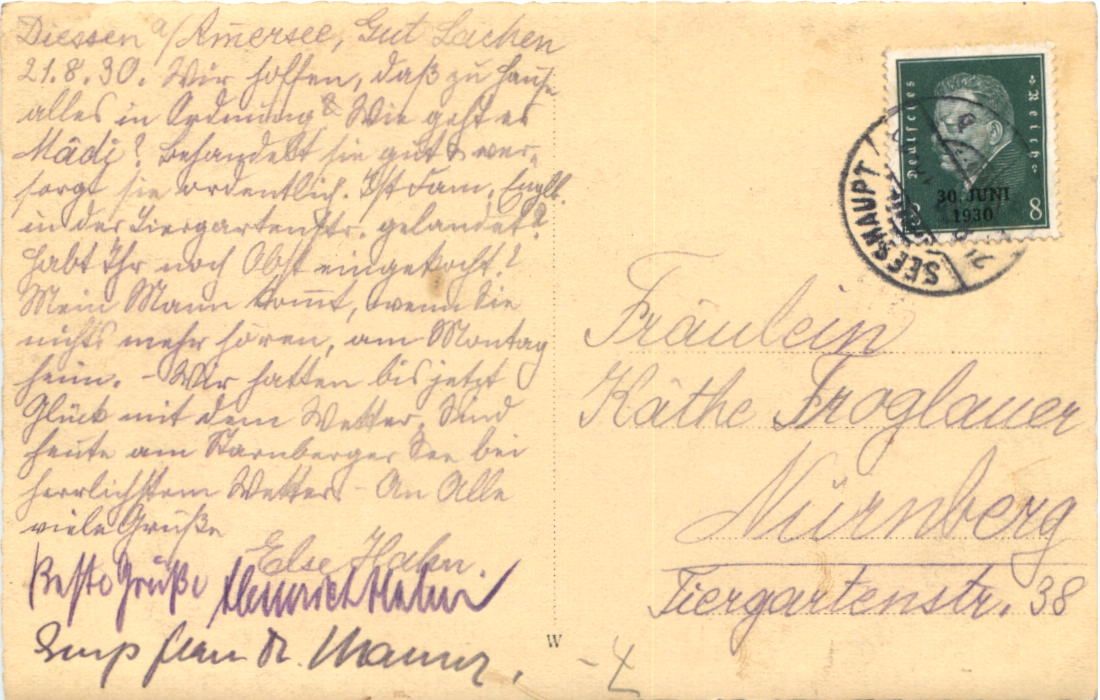 Diessen a/Ammersee, Gut Lachen
21.8.30. Wir hoffen, daß zu Hause
alles in Ordnung. Wie geht es
Mädi? Behandelt sie gut & ver-
sorgt sie ordentlich. Ist Fam. Englb.
in der Tiergartenstr. gelandet?
Habt Ihr noch Obst eingekocht?
Mein Mann kommt, wenn Sie
nichts mehr hören, am Montag
heim. - Wir hatten bis jetzt
Glück mit dem Wetter. Sind
heute am Starnberger See bei
herrlichstem Wetter. - An Alle
viele Grüße
Else Hahn.
Beste Grüße Heinrich Hahn
Frau Dr.
Deutsches Reich
30. JUNI
1930
8 8
SEESHAUPT
Fräulein
Käthe Froglauer
Nürnberg
Tiergartenstr. 38
W